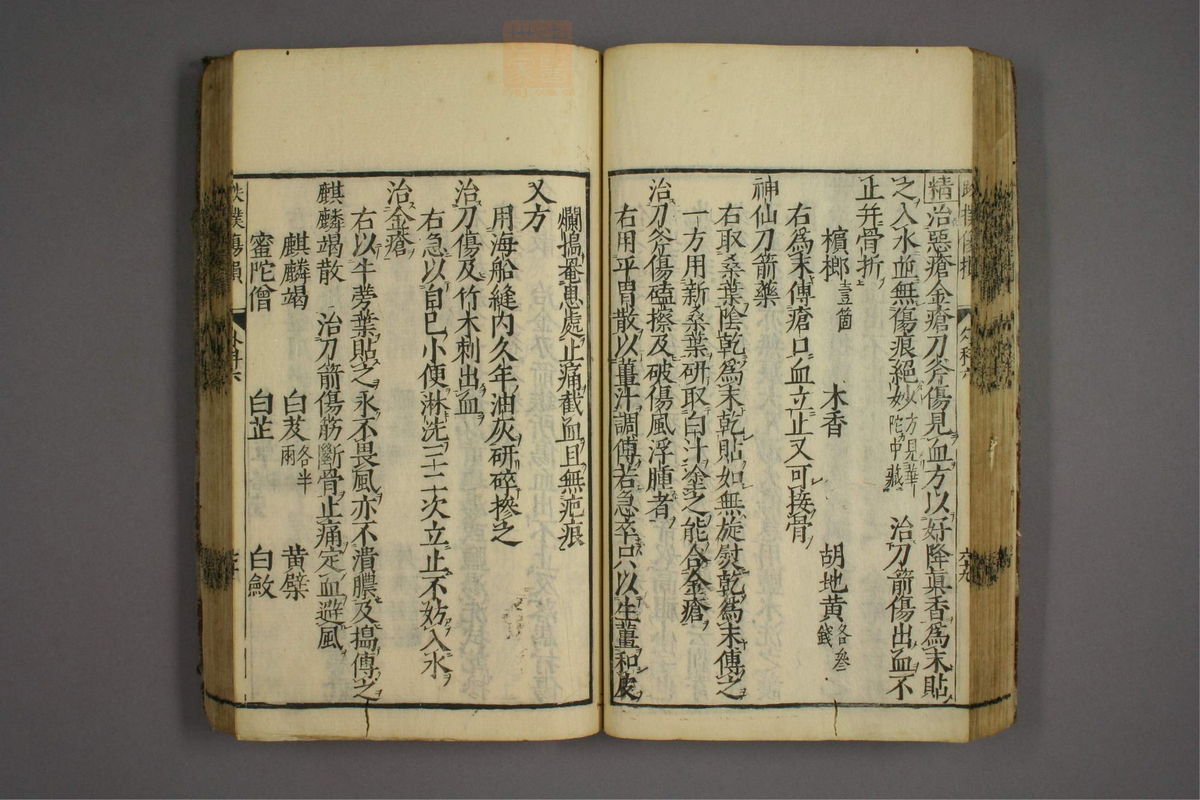 精治惡瘡金瘡刀斧傷見血方以好降眞香爲末貼
之入水並無傷痕絕妙方見華陀中藏 治刀箭傷出血不
止并骨折
檳榔壹箇 木香 胡地黃各叄錢
右爲末傅瘡口血立止又可接骨
神仙刀箭藥
右取桑葉陰乾爲末乾貼如無旋熨乾爲末傅之
一方用新桑葉研取白汁塗之能合金瘡
治刀斧傷磕擦及破傷風浮腫者
右用平胃散以薑汁調傅若急卒只以生薑和皮
爛搗罨患處止痛截血且無疤痕
又方
用海船縫内久年油灰研碎摻之
治刀傷及竹木刺出血
右急以自己小便淋洗三二次立止不妨入水
治金瘡
右以牛蒡葉貼之永不畏風亦不潰膿及搗傅之
麒麟竭散 治刀箭傷筋斷骨止痛定血避風
麒麟竭 白芨各半兩 黃檗
蜜陀僧 白芷 白斂